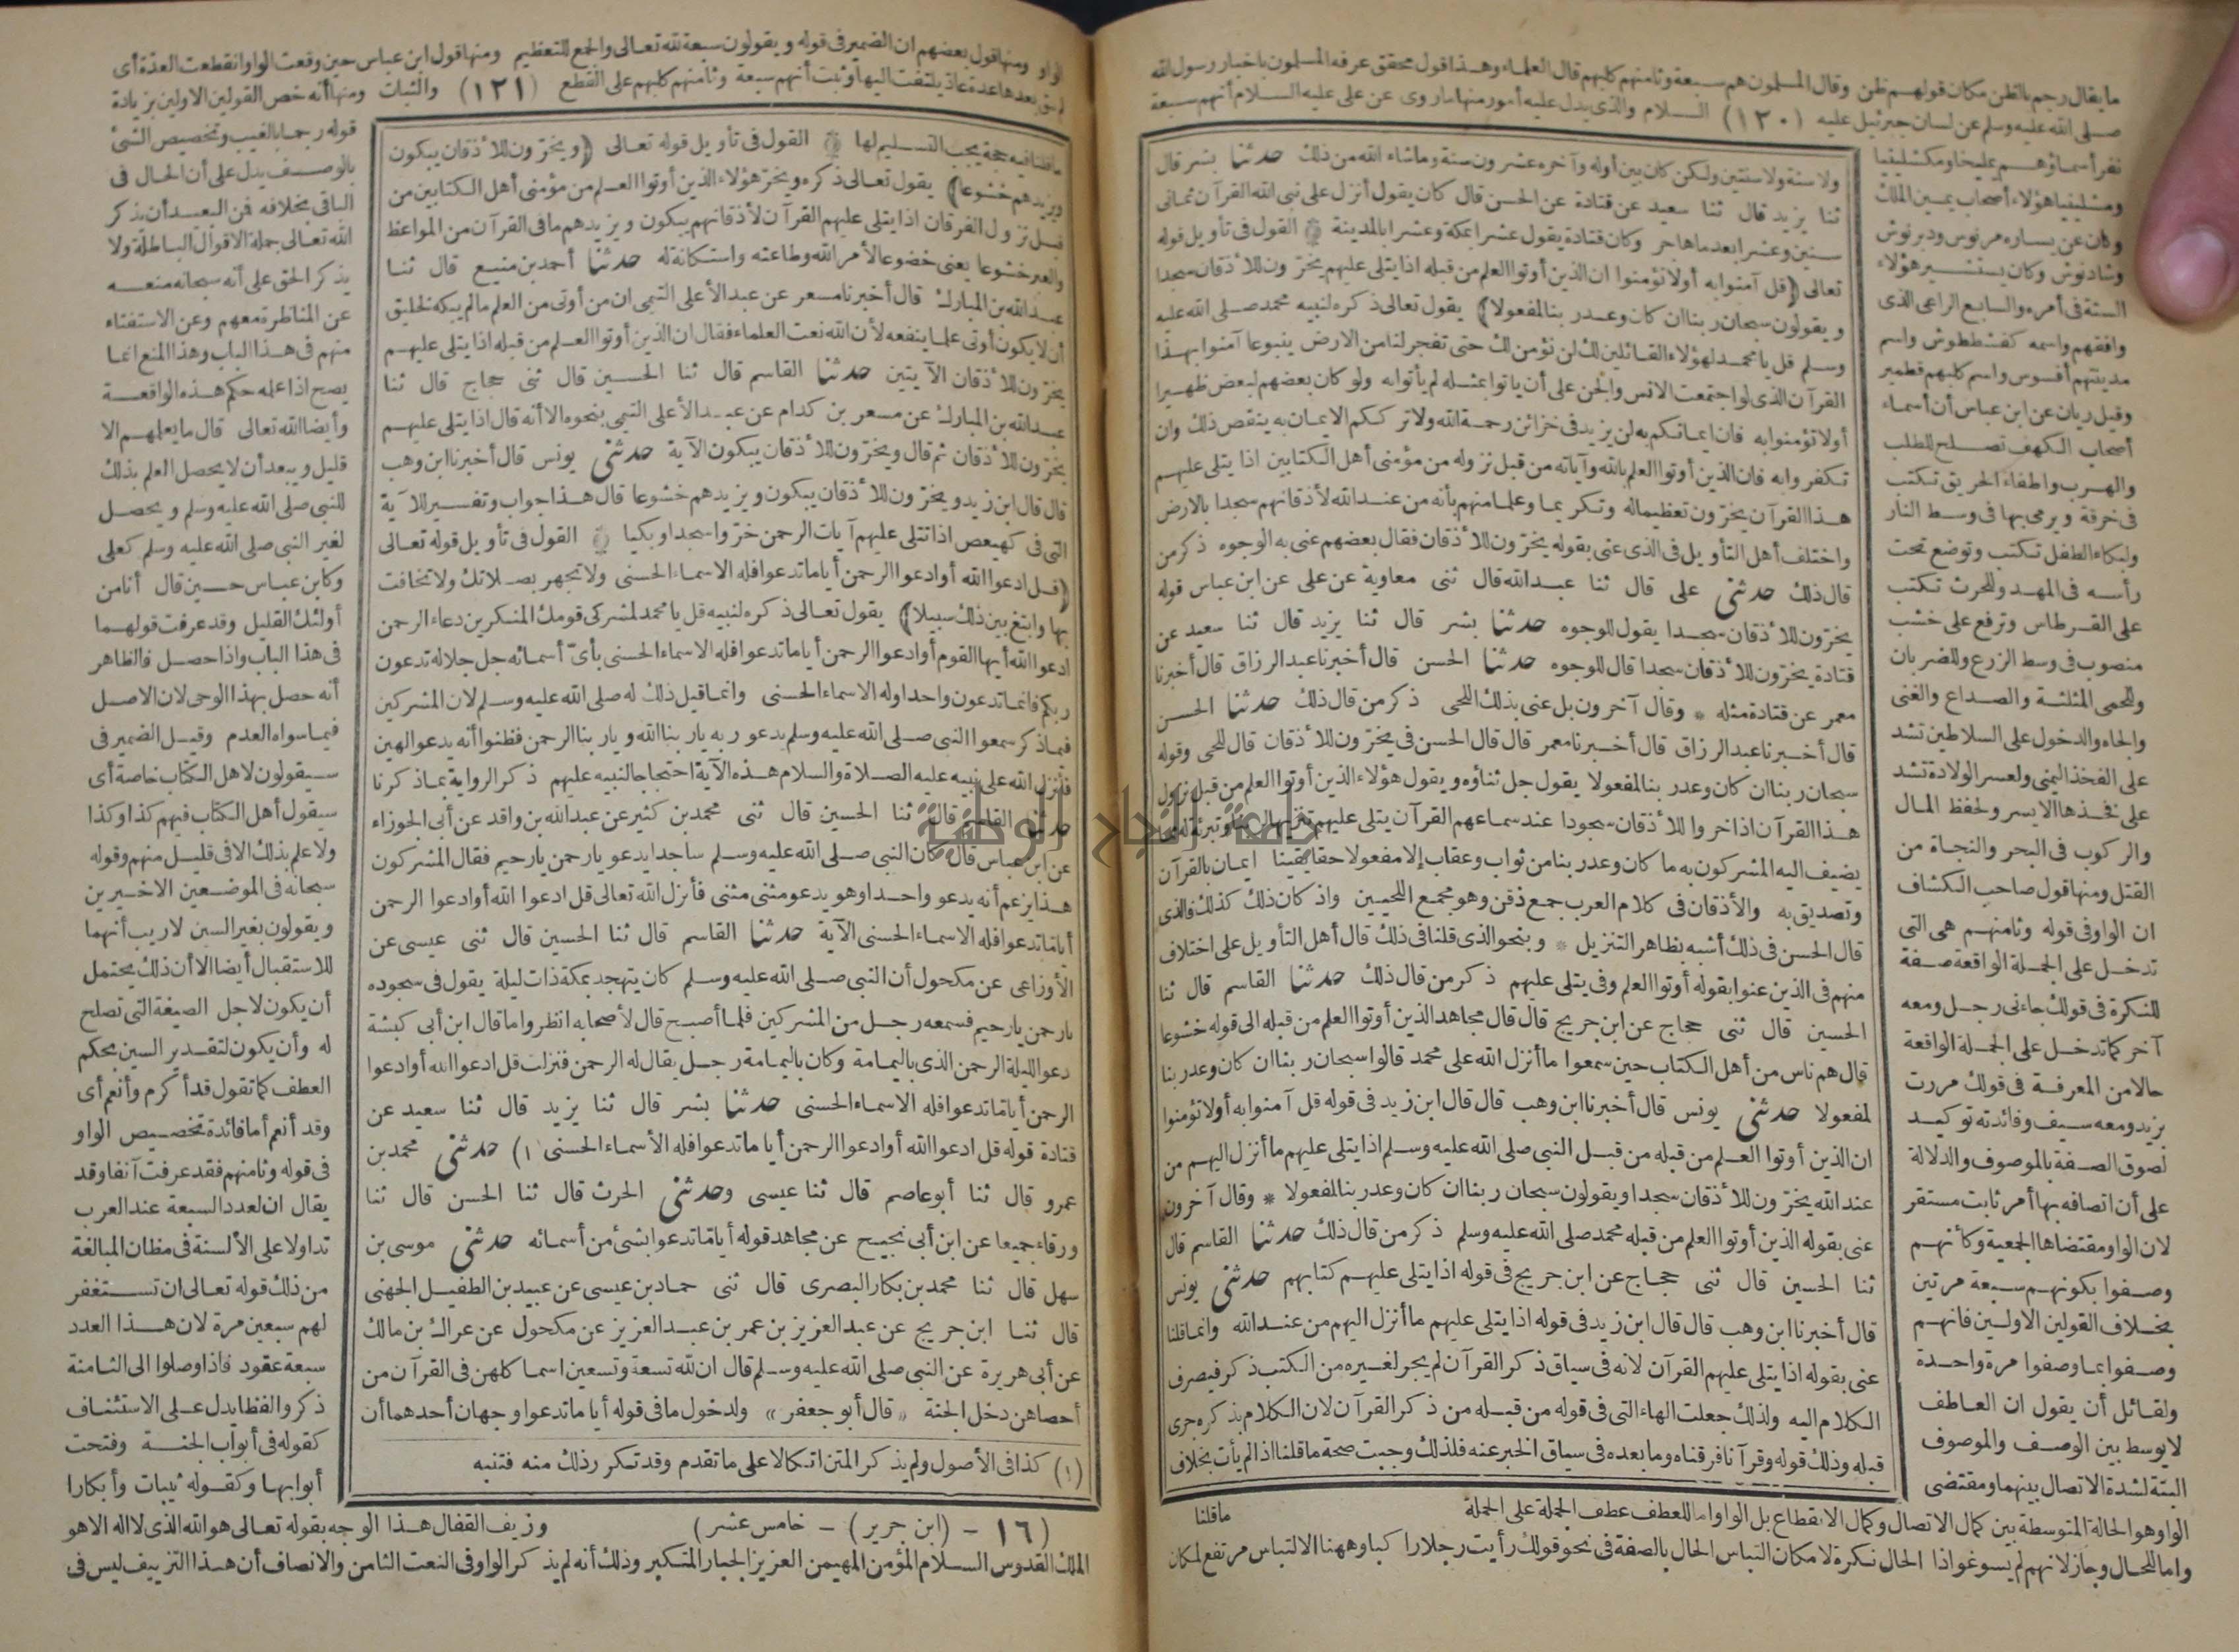 ما يقال رجم بالظن مكان قولهم ظن وقال المسلمون هم سبعة وثامنهم كلبهم قال العلماء وهذا قول محقق عرفه المسلمون باخبار رسول الله
صلى الله عليه وسلم عن لسان جبرئيل عليه (١٢٠) السلام والذى يدل عليه أمور منها ما روى عن على عليه السلام أنهم سبعة
نفر أسماؤهم يمليخا ومكشليفيا
ومشليفيا هؤلاء أصحاب يمين الملك
وكان عن يساره مرنوش ودبرنوش
وشاذنوش وكان يستشير هؤلاء
الستة فى أمره والسابع الراعى الذى
وافقهم واسمه كفشططوش واسم
مدينتهم أفسوس واسم كلبهم قطمير
وقيل ريان عن ابن عباس أن أسماء
أصحاب الكهف تصلح للطلب
والهرب واطفاء الحريق تكتب
فى خرقة ويرمى بها فى وسط النار
ولبكاء الطفل تكتب وتوضع تحت
رأسه فى المهد وللحرث تكتب
على القرطاس وترفع على خشب
منصوب فى وسط الزرع وللضربان
وللحمى المثلثة والصداع والغنى
والجاه والدخول على السلاطين تشد
على الفخذ اليمنى ولعسر الولادة تشد
على فخذها الايسر ولحفظ المال
والركوب فى البحر والنجاة من
القتل ومنها قول صاحب الكشاف
ان الواو فى قوله وثامنهم هى التى
تدخل على الجملة الواقعة صفة
للنكرة فى قولك جاءنى رجل ومعه
آخر كما تدخل على الجملة الواقعة
حالا من المعرفة فى قولك مررت
بزيد ومعه سيف وفائدته توكيد
لصوق الصفة بالموصوف والدلالة
على أن اتصافه بها أمر ثابت مستقر
لان الواو مقتضاها الجمعية وكأنهم
وصفوا بكونهم سبعة مرتين
بخلاف القولين الاولين فانهم
وصفوا بما وصفوا مرة واحدة
ولقائل أن يقول ان العاطف
لا يوسط بين الوصف والموصوف
البتة لشدة الاتصال بينهما ومقتضى
الواو هو الحالة المتوسطة بين كمال الاتصال وكمال الانقطاع بل الواو اما للعطف عطف الجملة على الجملة
واما للحال وجاز لانهم لم يسوغوا ذا الحال نكرة لا مكان التباس الحال بالصفة فى نحو قولك رأيت رجلا راكبا وههنا الالتباس مرتفع لمكان
ولا سنة ولا سنتين ولكن كان بين أوله وآخره عشرون سنة وما شاء الله من ذلك حدثنا بشر قال
ثنا يزيد قال ثنا سعيد عن قتادة عن الحسن قال كان يقول أنزل على نبى الله القرآن ثمانى
سنين وعشرا بعد ما هاجر وكان قتادة يقول عشرا بمكة وعشرا بالمدينة القول فى تأويل قوله
تعالى (قل آمنوا به أولا تؤمنوا ان الذين أوتوا العلم من قبله اذا يتلى عليهم يخرّون للأذقان سجدا
ويقولون سبحان ربنا ان كان وعد ربنا لمفعولا) يقول تعالى ذكره لنبيه محمد صلى الله عليه
وسلم قل يا محمد لهؤلاء القائلين لك لن نؤمن لك حتى تفجر لنا من الارض ينبوعا آمنوا بهذا
القرآن الذى لو اجتمعت الانس والجن على أن يأتوا بمثله لم يأتوا به ولو كان بعضهم لبعض ظهيرا
أولا تؤمنوا به فان ايمانكم به لن يزيد فى خزائن رحمة الله ولا ترككم الايمان به ينقص ذلك وان
تكفروا به فان الذين أوتوا العلم بالله وآياته من قبل نزوله من مؤمنى أهل الكتابين اذا يتلى عليهم
هذا القرآن يخرّون تعظيما له وتكريما وعلما منهم بأنه من عند الله لأذقانهم سجدا بالارض
واختلف أهل التأويل فى الذى عنى بقوله يخرّون للأذقان فقال بعضهم عنى به الوجوه ذكر من
قال ذلك حدثنى على قال ثنا عبد الله قال ثنى معاوية عن على عن ابن عباس قوله
يخرّون للأذقان سجدا يقول للوجوه حدثنا بشر قال ثنا يزيد قال ثنا سعيد عن
قتادة يخرّون للأذقان سجدا قال للوجوه حدثنا الحسن قال أخبرنا عبد الرزاق قال أخبرنا
معمر عن قتادة مثله * وقال آخرون بل عنى بذلك اللحى ذكر من قال ذلك حدثنا الحسن
قال أخبرنا عبد الرزاق قال أخبرنا معمر قال قال الحسن فى يخرّون للأذقان قال للحى وقوله
سبحان ربنا ان كان وعد ربنا لمفعولا يقول جل ثناؤه ويقول هؤلاء الذين أوتوا العلم من قبل نزول
هذا القرآن اذا خروا للأذقان سجودا عند سماعهم القرآن يتلى عليهم تنزيها لربنا وتبرئة له مما
يضيف اليه المشركون به ما كان وعد ربنا من ثواب وعقاب إلا مفعولا حقا يقينا ايمان بالقرآن
وتصديق به والأذقان فى كلام العرب جمع ذقن وهو مجمع اللحيين واذ كان ذلك كذلك فالذى
قال الحسن فى ذلك أشبه بظاهر التنزيل * وبنحو الذى قلنا فى ذلك قال أهل التأويل على اختلاف
منهم فى الذين عنوا بقوله أوتوا العلم وفى يتلى عليهم ذكر من قال ذلك حدثنا القاسم قال ثنا
الحسين قال ثنى حجاج عن ابن جريج قال قال مجاهد الذين أوتوا العلم من قبله الى قوله خشوعا
قال هم ناس من أهل الكتاب حين سمعوا ما أنزل الله على محمد قالوا سبحان ربنا ان كان وعد ربنا
لمفعولا حدثنى يونس قال أخبرنا ابن وهب قال قال ابن زيد فى قوله قل آمنوا به أولا تؤمنوا
ان الذين أوتوا العلم من قبله من قبل النبى صلى الله عليه وسلم اذا يتلى عليهم ما أنزل اليهم من
عند الله يخرّون للأذقان سجدا ويقولون سبحان ربنا ان كان وعد ربنا لمفعولا * وقال آخرون
عنى بقوله الذين أوتوا العلم من قبله محمد صلى الله عليه وسلم ذكر من قال ذلك حدثنا القاسم قال
ثنا الحسين قال ثنى حجاج عن ابن جريج فى قوله اذا يتلى عليهم كتابهم حدثنى يونس
قال أخبرنا ابن وهب قال قال ابن زيد فى قوله اذا يتلى عليهم ما أنزل اليهم من عند الله وانما قلنا
عنى بقوله اذا يتلى عليهم القرآن لانه فى سياق ذكر القرآن لم يجر لغيره من الكتب ذكر فيصرف
الكلام اليه ولذلك جعلت الهاء التى فى قوله من قبله من ذكر القرآن لان الكلام بذكره جرى
قبله وذلك قوله وقرآنا فرقناه وما بعده فى سياق الخبر عنه فلذلك وجبت صحة ما قلنا اذا لم يأت بخلاف
ما قلنا
الواو ومنها قول بعضهم ان الضمير فى قوله ويقولون سبعة لله تعالى والجمع للتعظيم ومنها قول ابن عباس حين وقعت الواو انقطعت العدة أى
لم يبق بعدها عدة عاد يلتفت اليها وثبت أنهم سبعة وثامنهم كلبهم على القطع (١٢١) والثبات ومنها أنه خص القولين الاولين بزيادة
ما قلنا فيه حجة يجب التسليم لها القول فى تأويل قوله تعالى (ويخرّون للأذقان يبكون
ويزيدهم خشوعا) يقول تعالى ذكره ويخرّ هؤلاء الذين أوتوا العلم من مؤمنى أهل الكتابين من
قبل نزول الفرقان اذا يتلى عليهم القرآن لأذقانهم يبكون ويزيدهم ما فى القرآن من المواعظ
والعبر خشوعا يعنى خضوعا لأمر الله وطاعته واستكانة له حدثنا أحمد بن منيع قال ثنا
عبد الله بن المبارك قال أخبرنا مسعر عن عبد الأعلى التيمى ان من أوتى من العلم ما لم يبكه لخليق
أن لا يكون أوتى علما ينفعه لأن الله نعت العلماء فقال ان الذين أوتوا العلم من قبله اذا يتلى عليهم
يخرّون للأذقان الآيتين حدثنا القاسم قال ثنا الحسين قال ثنى حجاج قال ثنا
عبد الله بن المبارك عن مسعر بن كدام عن عبد الأعلى التيمى بنحوه الا أنه قال اذا يتلى عليهم
يخرّون للأذقان ثم قال ويخرّون للأذقان يبكون الآية حدثنى يونس قال أخبرنا ابن وهب
قال قال ابن زيد ويخرّون للأذقان يبكون ويزيدهم خشوعا قال هذا جواب وتفسير للآية
التى فى كهيعص اذا تتلى عليهم آيات الرحمن خرّوا سجدا وبكيا القول فى تأويل قوله تعالى
(قل ادعوا الله أو ادعوا الرحمن أياما تدعوا فله الاسماء الحسنى ولا تجهر بصلاتك ولا تخافت
بها وابتغ بين ذلك سبيلا) يقول تعالى ذكره لنبيه قل يا محمد لمشركى قومك المنكرين دعاء الرحمن
ادعوا الله أيها القوم أو ادعوا الرحمن أياما تدعوا فله الاسماء الحسنى بأىّ أسمائه جل جلاله تدعون
ربكم فانما تدعون واحدا وله الاسماء الحسنى وانما قيل ذلك له صلى الله عليه وسلم لان المشركين
فيما ذكر سمعوا النبى صلى الله عليه وسلم يدعو ربه يا ربنا الله ويا ربنا الرحمن فظنوا أنه يدعو الهين
فأنزل الله على نبيه عليه الصلاة والسلام هذه الآية احتجاجا لنبيه عليهم ذكر الرواية بما ذكرنا
حدثنا القاسم قال ثنا الحسين قال ثنى محمد بن كثير عن عبد الله بن واقد عن أبى الجوزاء
عن ابن عباس قال كان النبى صلى الله عليه وسلم ساجدا يدعو يا رحمن يا رحيم فقال المشركون
هذا يزعم أنه يدعو واحدا وهو يدعو مثنى مثنى فأنزل الله تعالى قل ادعوا الله أو ادعوا الرحمن
أياما تدعوا فله الاسماء الحسنى الآية حدثنا القاسم قال ثنا الحسين قال ثنى عيسى عن
الأوزاعى عن مكحول أن النبى صلى الله عليه وسلم كان يتهجد بمكة ذات ليلة يقول فى سجوده
يا رحمن يا رحيم فسمعه رجل من المشركين فلما أصبح قال لأصحابه انظروا ما قال ابن أبى كبشة
دعوا الليلة الرحمن الذى باليمامة وكان باليمامة رجل يقال له الرحمن فنزلت قل ادعوا الله أو ادعوا
الرحمن أياما تدعوا فله الاسماء الحسنى حدثنا بشر قال ثنا يزيد قال ثنا سعيد عن
قتادة قوله قل ادعوا الله أو ادعوا الرحمن أياما تدعوا فله الأسماء الحسنى (١) حدثنى محمد بن
عمرو قال ثنا أبو عاصم قال ثنا عيسى وحدثنى الحرث قال ثنا الحسن قال ثنا
ورقاء جميعا عن ابن أبى نجيح عن مجاهد قوله أياما تدعوا بشئ من أسمائه حدثنى موسى بن
سهل قال ثنا محمد بن بكار البصرى قال ثنى حماد بن عيسى عن عبيد بن الطفيل الجهنى
قال ثنا ابن جريج عن عبد العزيز بن عمر بن عبد العزيز عن مكحول عن عراك بن مالك
عن أبى هريرة عن النبى صلى الله عليه وسلم قال ان لله تسعة وتسعين اسما كلهن فى القرآن من
أحصاهن دخل الجنة «قال أبو جعفر» ولدخول ما فى قوله أياما تدعوا وجهان أحدهما أن
(١) كذا فى الأصول ولم يذكر المتن اتكالا على ما تقدم وقد تكرر ذلك منه فتنبه
قوله رجما بالغيب وتخصيص الشئ
بالوصف يدل على أن الحال فى
الباقى بخلافه فمن البعيد أن يذكر
الله تعالى جملة الاقوال الباطلة ولا
يذكر الحق على أنه سبحانه منعه
عن المناظرة معهم وعن الاستفتاء
منهم فى هذا الباب وهذا المنع انما
يصح اذا علمه حكم هذه الواقعة
وأيضا الله تعالى قال ما يعلمهم الا
قليل ويبعد أن لا يحصل العلم بذلك
للنبى صلى الله عليه وسلم ويحصل
لغير النبى صلى الله عليه وسلم كعلى
وكابن عباس حسين قال أنا من
أولئك القليل وقد عرفت قولهما
فى هذا الباب واذا حصل فالظاهر
أنه حصل بهذا الوحى لان الاصل
فيما سواه العدم وقيل الضمير فى
سيقولون لاهل الكتاب خاصة أى
سيقول أهل الكتاب فيهم كذا وكذا
ولا علم بذلك الا فى قليل منهم وقوله
سبحانه فى الموضعين الاخيرين
ويقولون بغير السين لا ريب أنهما
للاستقبال أيضا الا أن ذلك يحتمل
أن يكون لاجل الصيغة التى تصلح
له وأن يكون لتقدير السين بحكم
العطف كما تقول قد أكرم وأنعم أى
وقد أنعم أما فائدة تخصيص الواو
فى قوله وثامنهم فقد عرفت آنفا وقد
يقال ان لعدد السبعة عند العرب
تداولا على الألسنة فى مظان المبالغة
من ذلك قوله تعالى ان تستغفر
لهم سبعين مرة لان هذا العدد
سبعة عقود فاذا وصلوا الى الثامنة
ذكروا لفظا يدل على الاستئناف
كقوله فى أبواب الجنة وفتحت
أبوابها وكقوله ثيبات وأبكارا
(١٦ - (ابن جرير) - خامس عشر) وزيف القفال هذا الوجه بقوله تعالى هو الله الذى لا اله الا هو
الملك القدوس السلام المؤمن المهيمن العزيز الجبار المتكبر وذلك أنه لم يذكر الواو فى النعت الثامن والانصاف أن هذا التزييف ليس فى
جامعة النجاح الوطنية